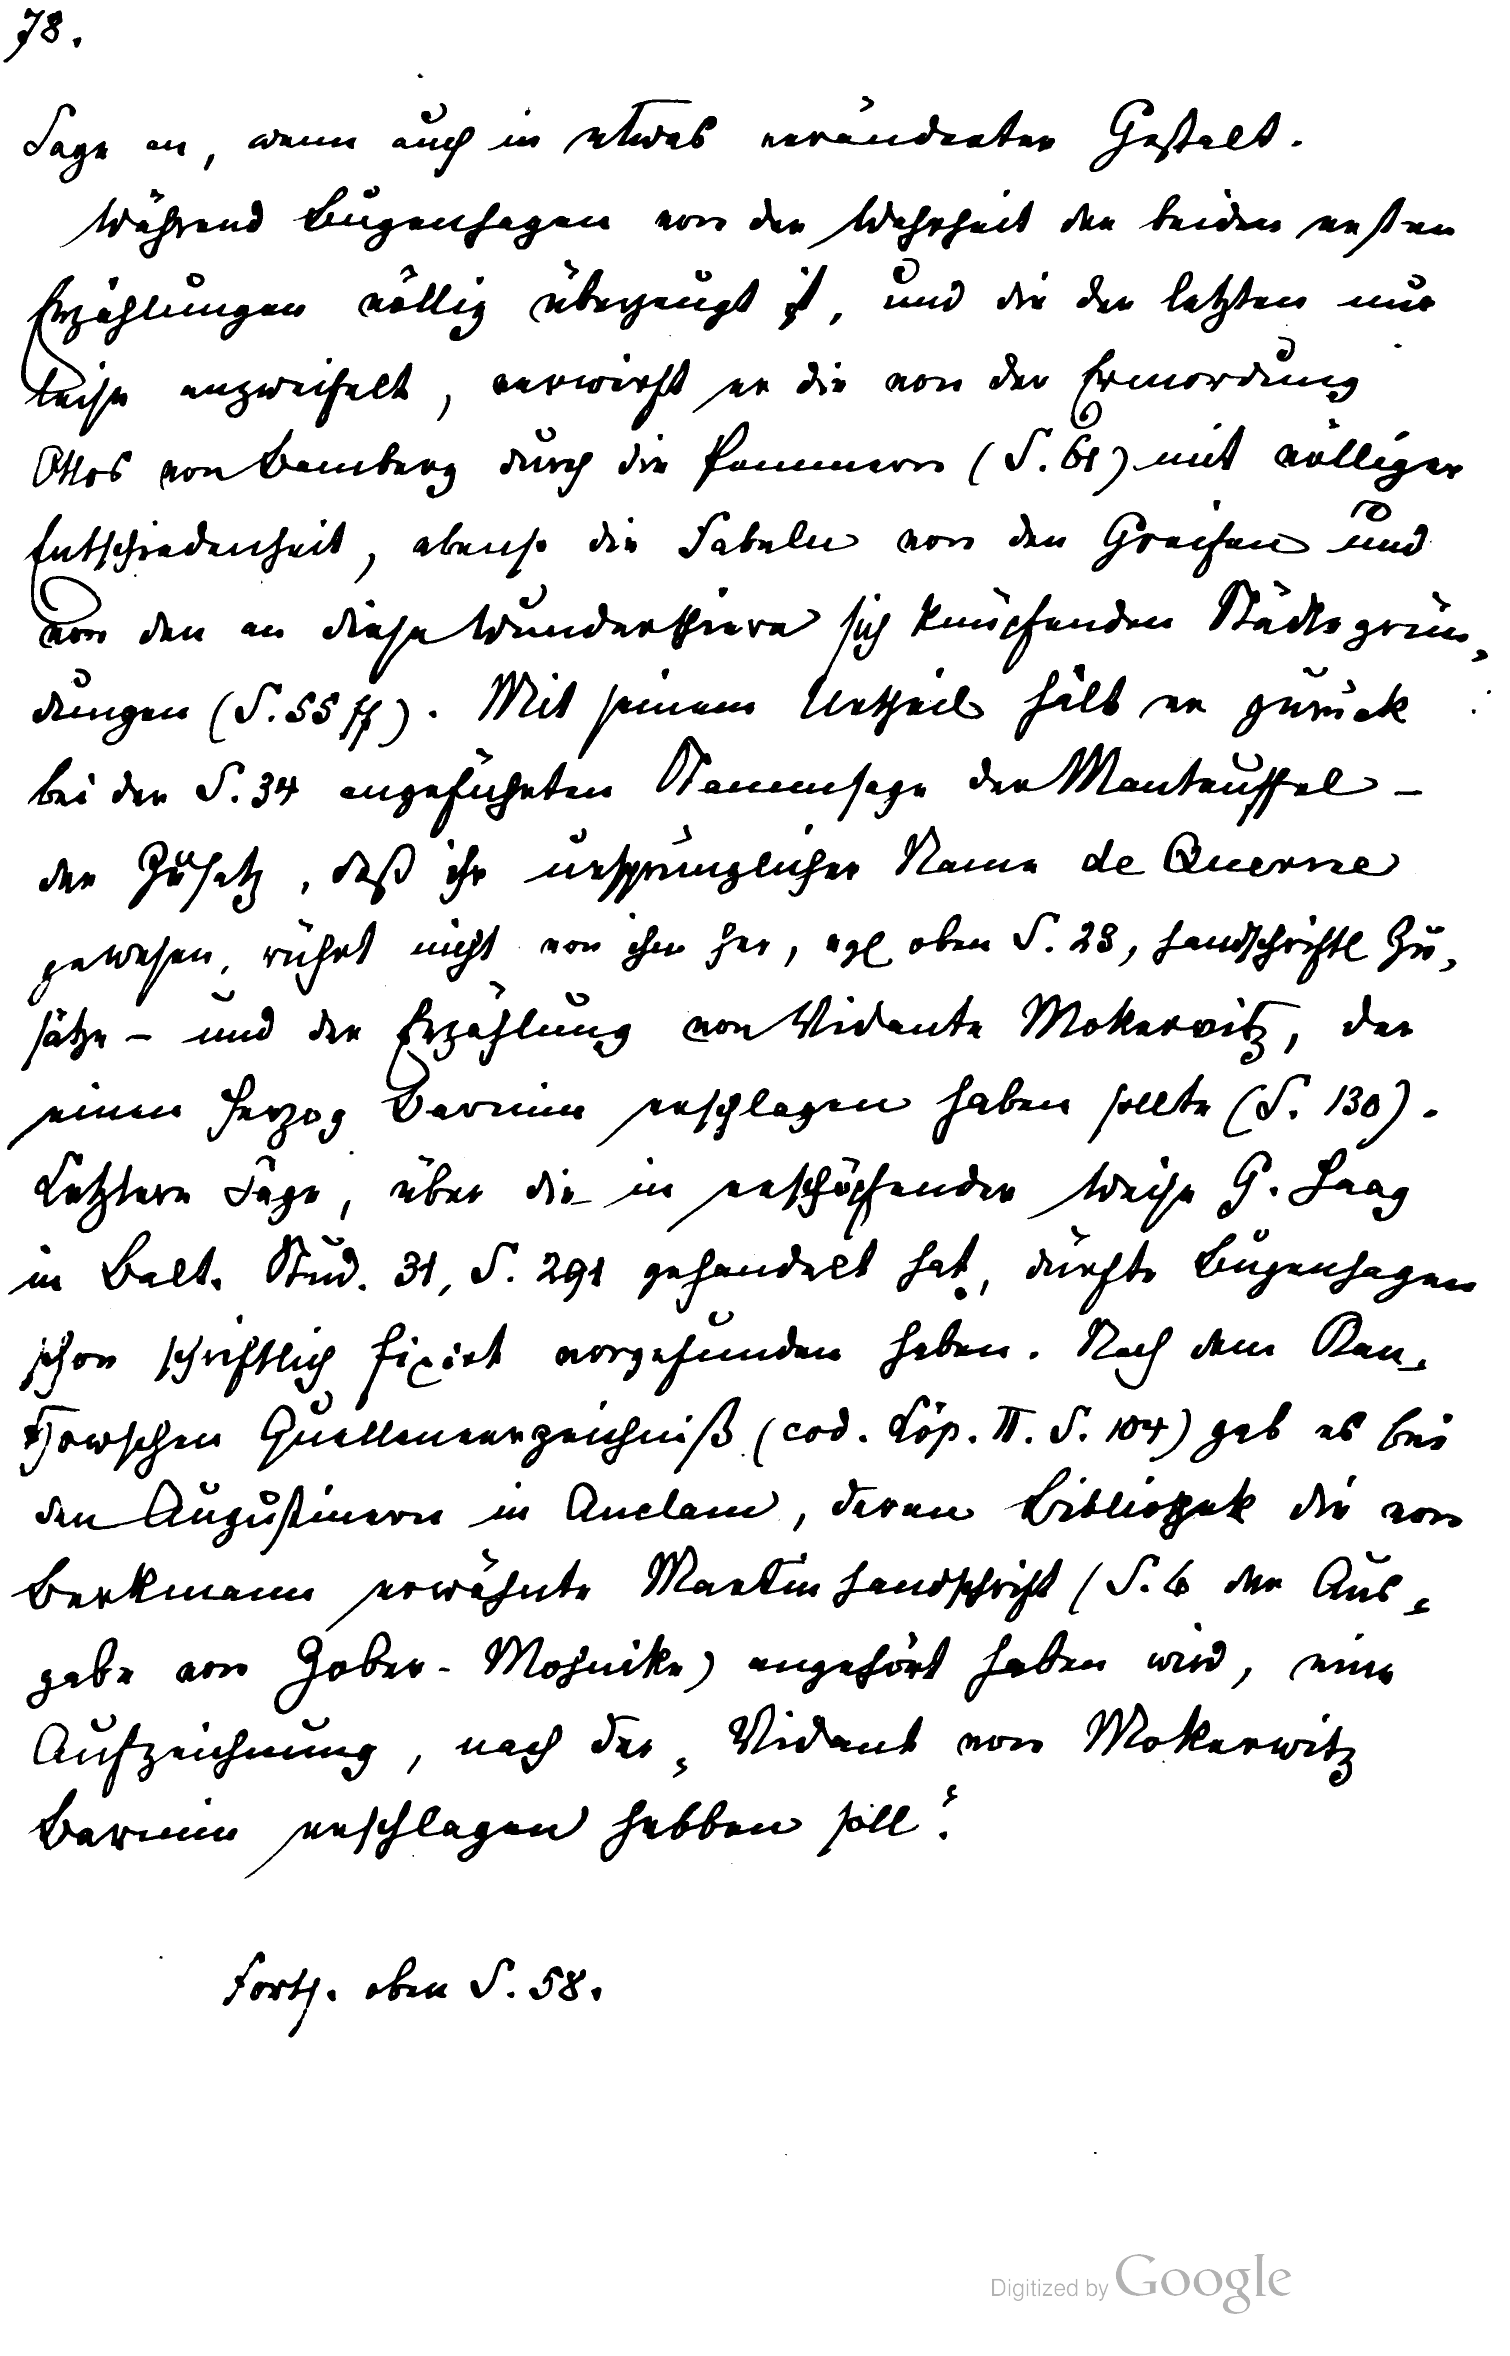 78.
Sage an, wenn auch in etwas veränderter Gestalt.
Während Bugenhagen von der Wahrheit der beiden ersten
Erzählungen völlig überzeugt ist, und die der letzten nur
leise anzweifelt, verwirft er die von der Ermordung
Ottos von Bamberg durch die Pommern (S. 61) mit völliger
Entschiedenheit, ebenso die Fabeln von den Greifen und
von den an diese Wunderthiere sich knüpfenden Städtegrün-
dungen (S. 55 ff). Mit seinem Urtheil hält er zurück
bei der S. 34 angeführten Stammsage der Manteuffel –
der Zusatz, daß ihr ursprünglicher Name de Querne
gewesen, rührt nicht von ihm her, vgl oben S. 28, handschriftl Zu-
sätze – und der Erzählung von Vidante Mokervitz, der
einen Herzog Barnim erschlagen haben sollte (S. 130).
Letztere Sage, über die in erschöpfender Weise G. Haag
in Balt. Stud. 31, S. 291 gehandelt hat, dürfte Bugenhagen
schon schriftlich fixirt vorgefunden haben. Nach dem Kan-
tzowschen Quellenverzeichniß (cod. Löp. II. S. 104) gab es bei
den Augustinern in Anclam, deren Bibliothek die von
Berkmann erwähnte Martinhandschrift (S. 6 der Aus-
gabe von Zober-Mohnike) angehört haben wird, eine
Aufzeichnung, nach der „Vidant von Mokerwitz
Barnim erschlagen hebben soll“.
Forts. oben S. 58.
Digitized by Google